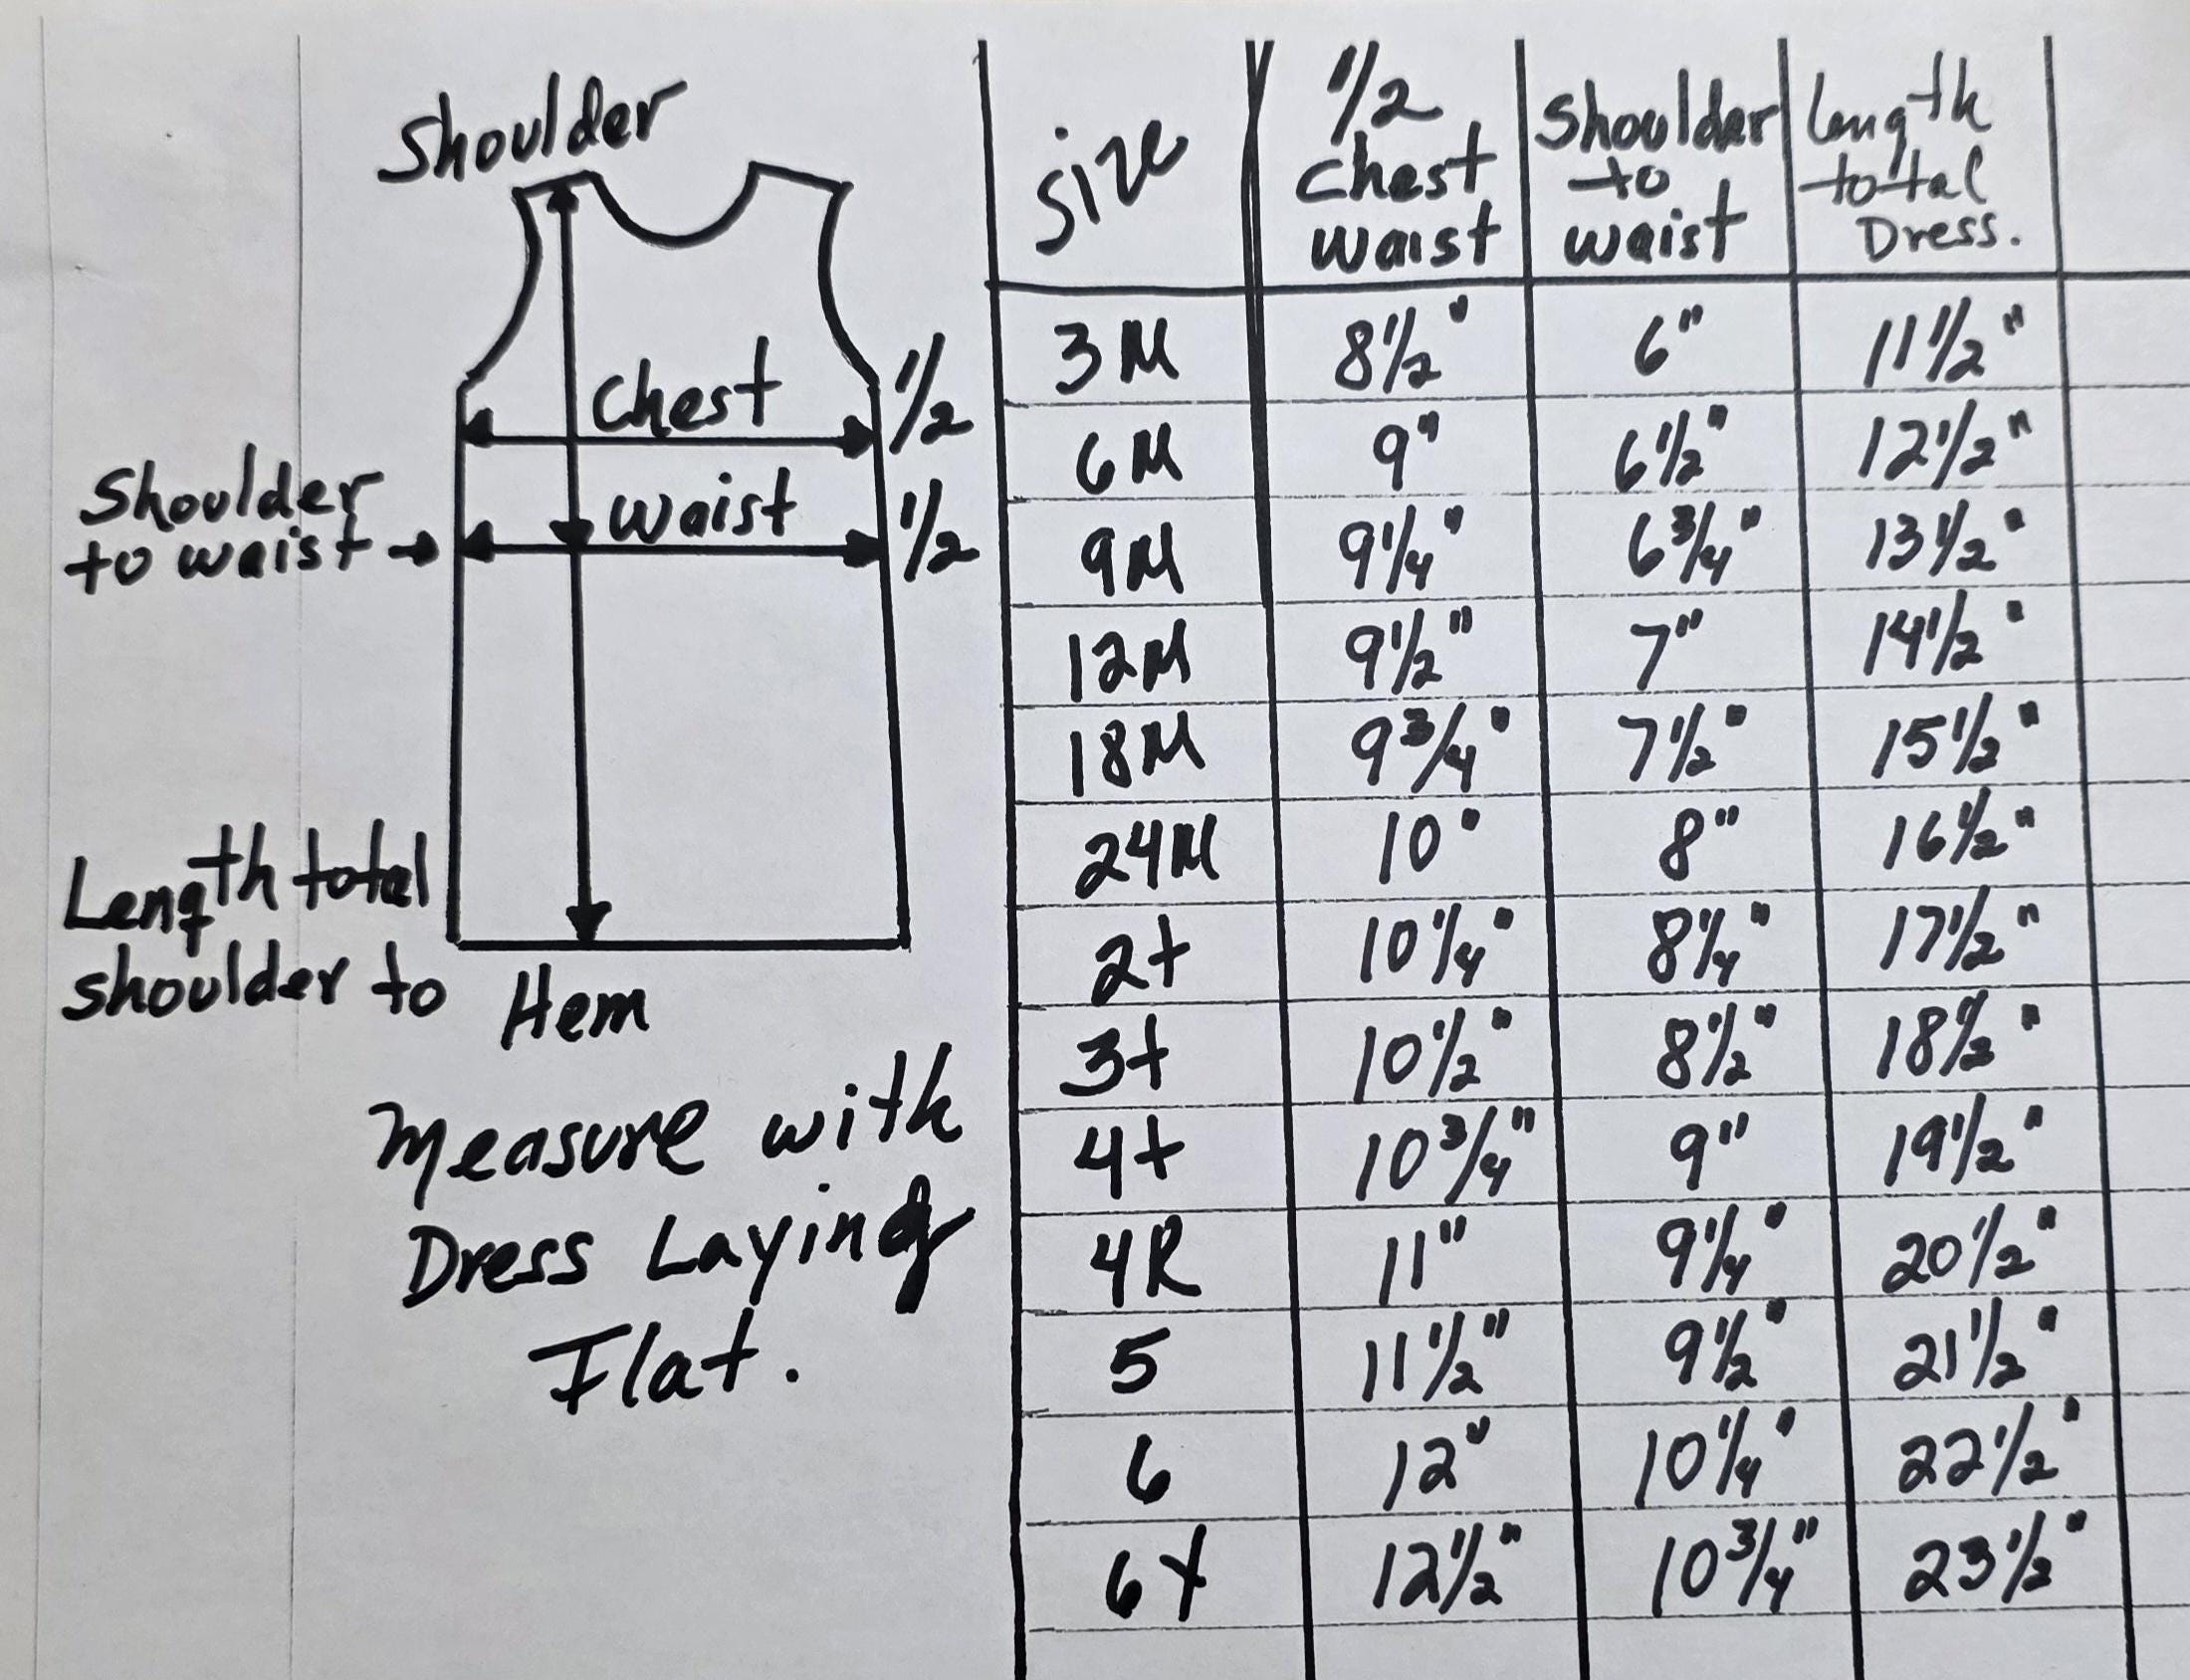 Shoulder
Chest 1/2
Shoulder
to waist → waist 1/2
Length total
shoulder to Hem
Measure with
Dress Laying
Flat.
Size 1/2 Chest waist Shoulder to waist Length total Dress.
3M 8 1/2" 6" 11 1/2"
6M 9" 6 1/2" 12 1/2"
9M 9 1/4" 6 3/4" 13 1/2"
12M 9 1/2" 7" 14 1/2"
18M 9 3/4" 7 1/2" 15 1/2"
24M 10" 8" 16 1/2"
2t 10 1/4" 8 1/4" 17 1/2"
3t 10 1/2" 8 1/2" 18 1/2"
4t 10 3/4" 9" 19 1/2"
4R 11" 9 1/4" 20 1/2"
5 11 1/2" 9 1/2" 21 1/2"
6 12" 10 1/4" 22 1/2"
6X 12 1/2" 10 3/4" 23 1/2"